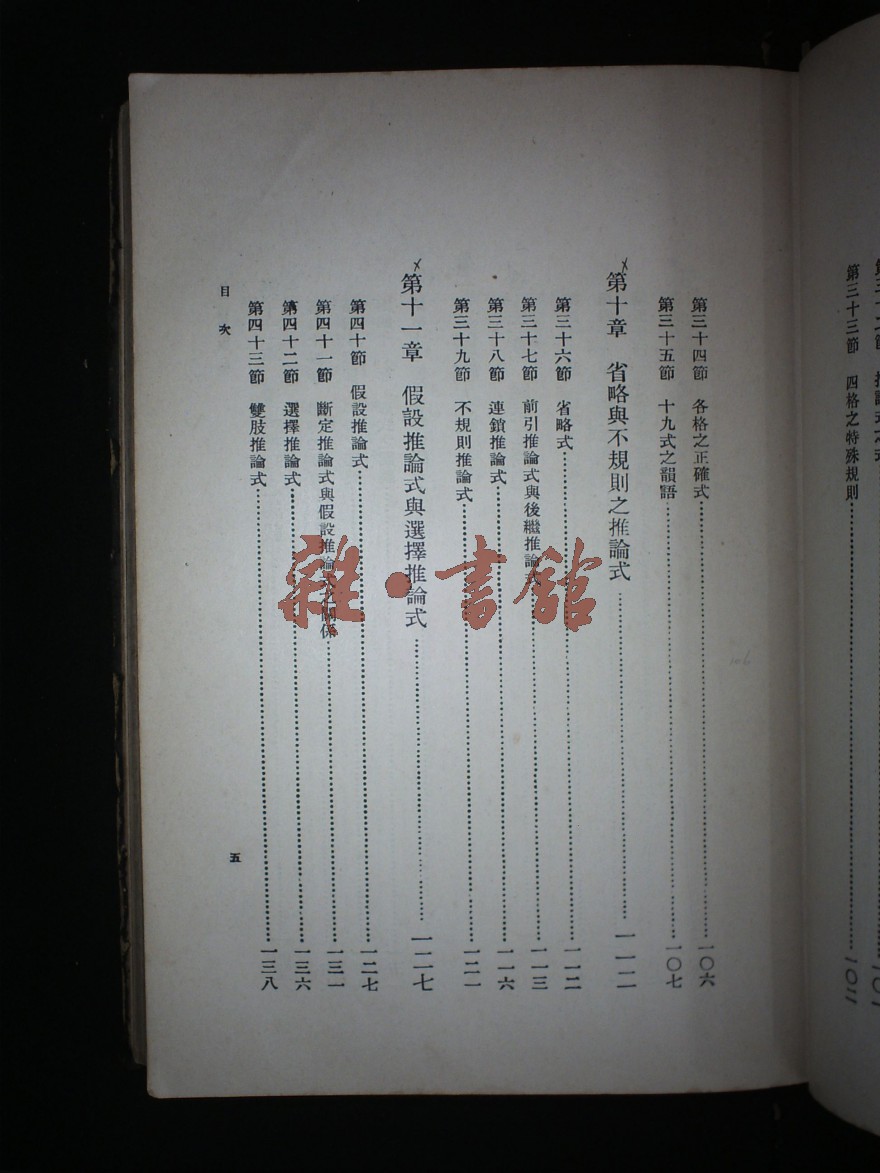 第三十三節　四格之特殊規則……一〇二
第三十四節　各格之正確式……一〇六
第三十五節　十九式之韻語……一〇七
第十章　省略與不規則之推論式……一一二
第三十六節　省略式……一一二
第三十七節　前引推論式與後繼推論式……一一三
第三十八節　連鎖推論式……一一六
第三十九節　不規則推論式……一二一
第十一章　假設推論式與選擇推論式……一二七
第四十節　假設推論式……一二七
第四十一節　斷定推論式與假設推論式之關係……一三一
第四十二節　選擇推論式……一三六
第四十三節　雙肢推論式……一三八
目次
五
雜·書館